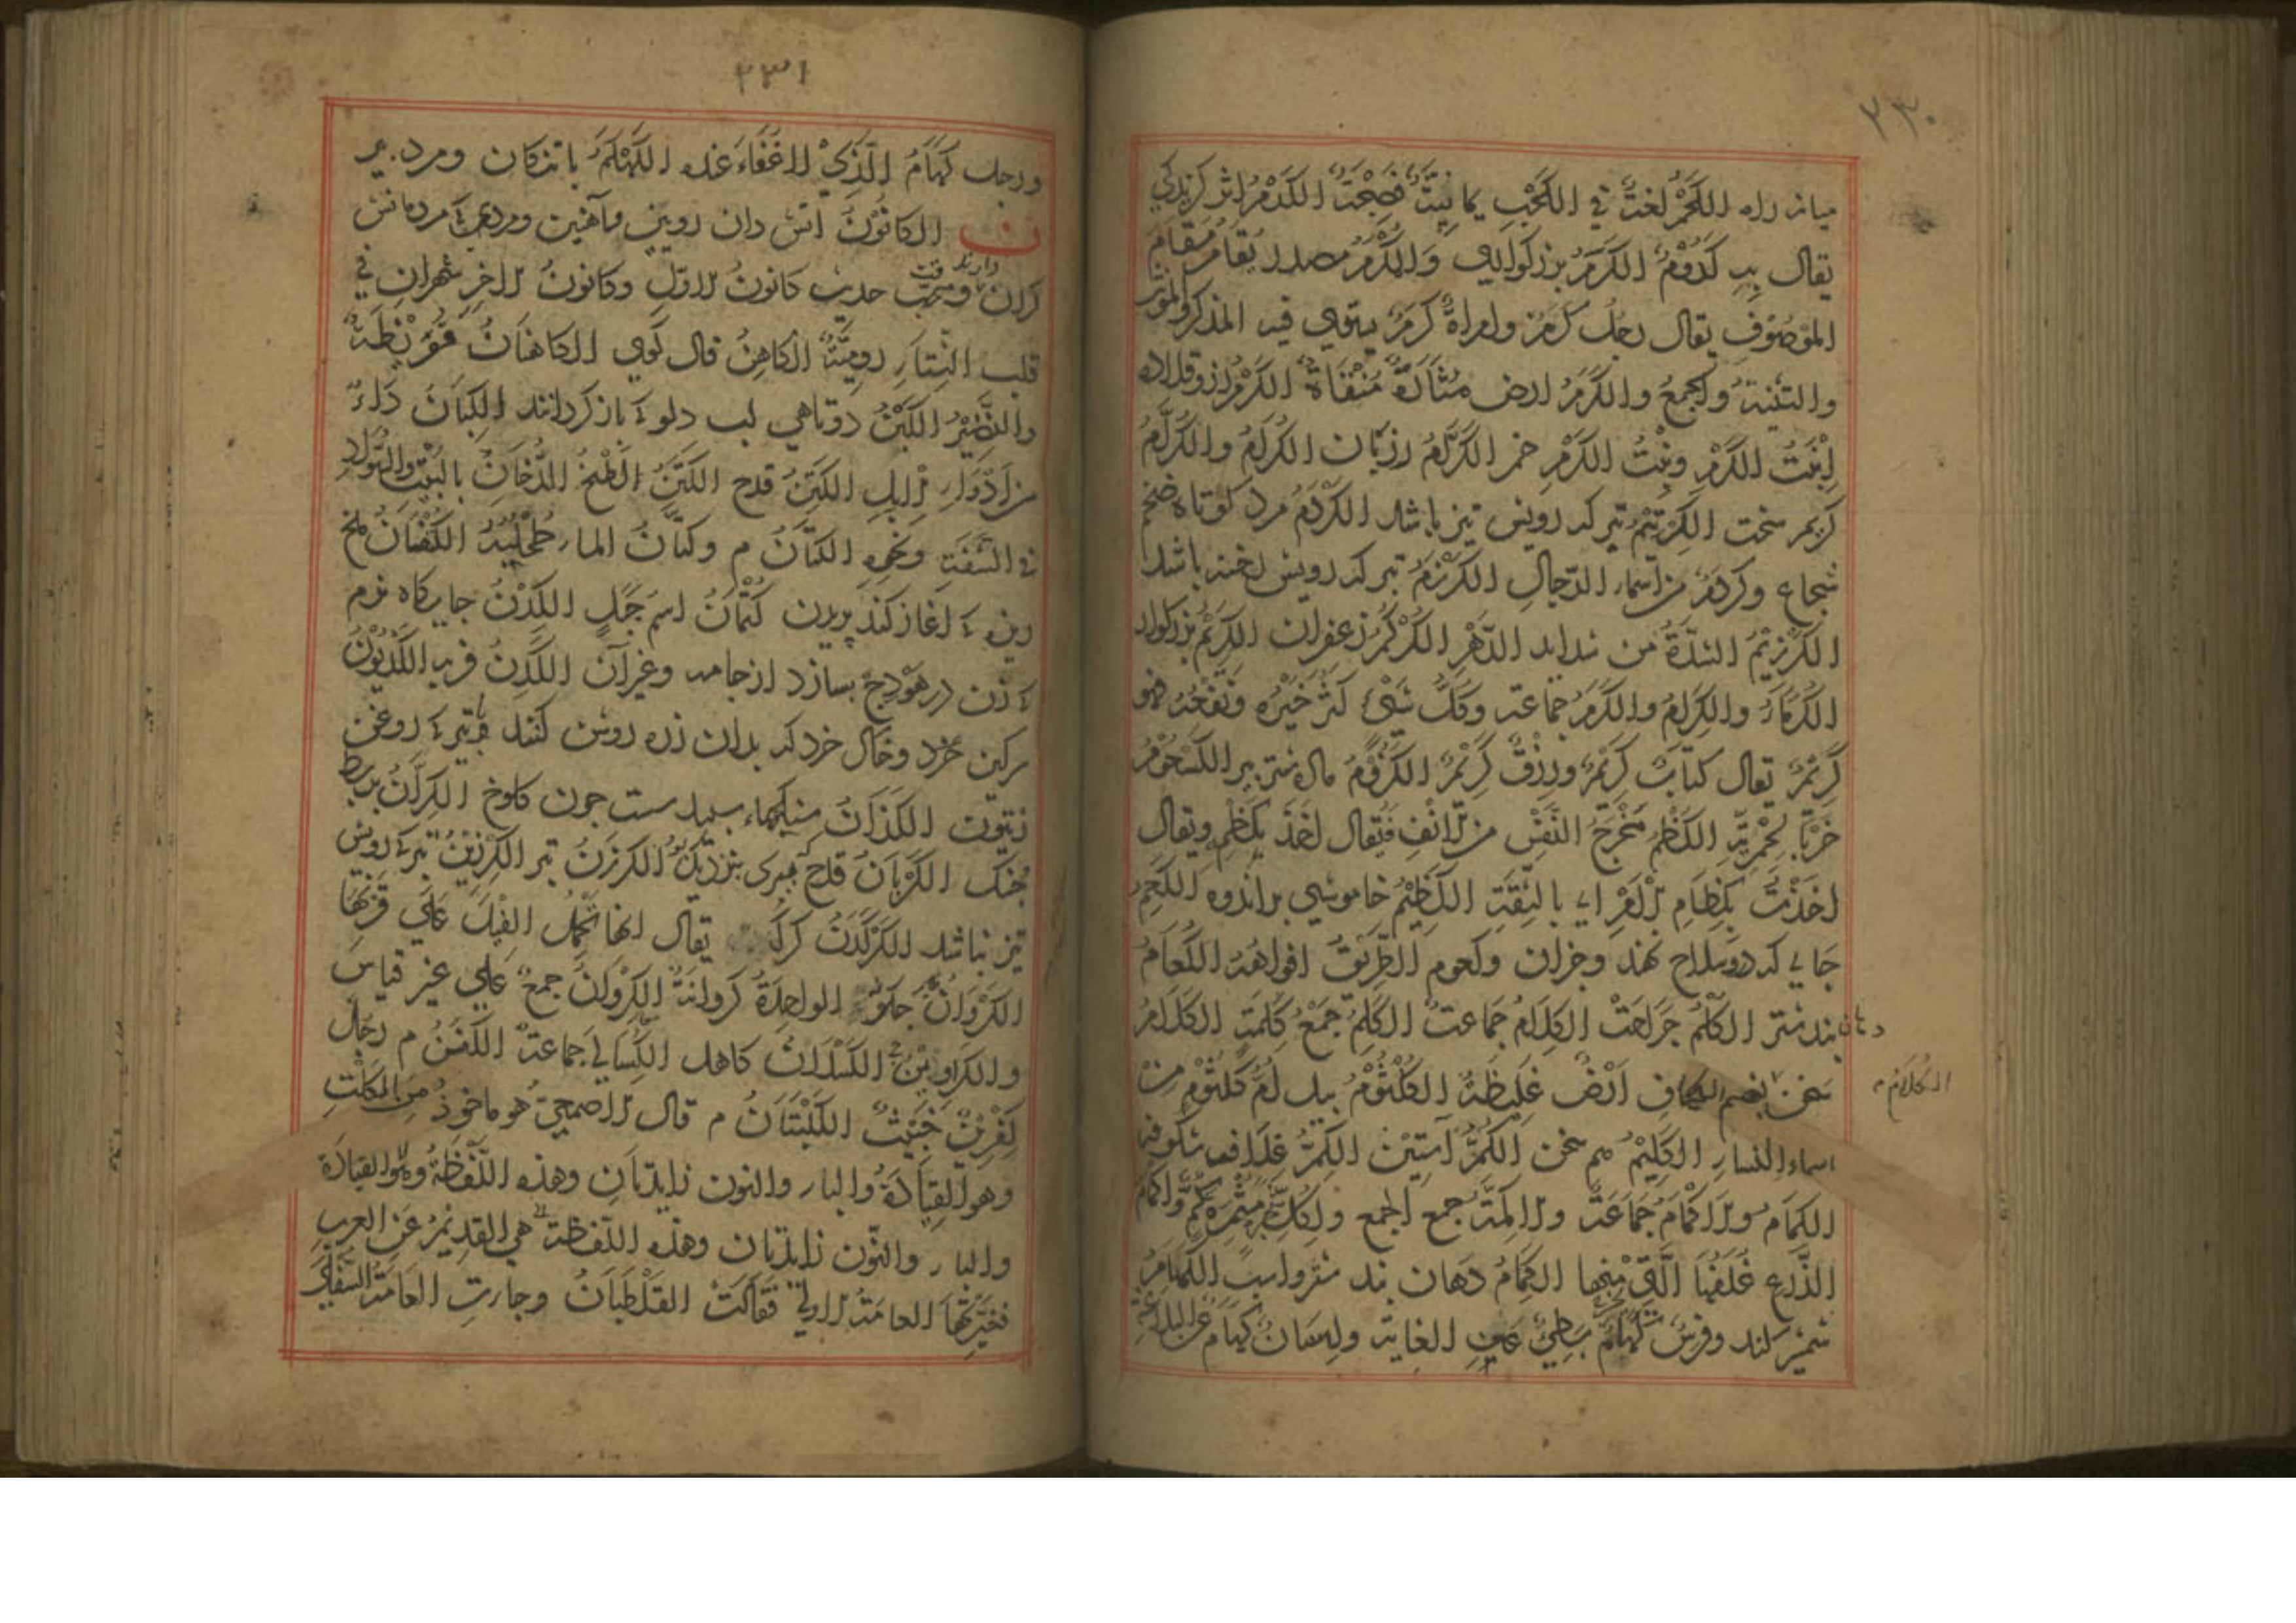 ٢٣٠
ميانه راه الكحم لغة في الكحب يمانية صحيحة الكدم اثر كزيدكي
يقال به كدوم الكرم بزرگواري والكرم مصدر يقام مقام
الموصوف يقال رجل كرم وامراة كرم يستوي فيه المذكر والمونث
والتثنية والجمع والكرم ارض مثارة منقاة الكرم رز وقلاده
ابنت الكرم وبنت الكرم خمر الكرام رزبان الكرام والكرام
كريم سخت الكرتيم تبر كه رويش تيز باشد الكردم مرد كوتاه ضخم
شجاع وكردم من اسماء الرجال الكرزم تبر كه رويش رخنه باشد
الكرزيم الشدة من شدايد الدهر الكركم زعفران الكريم بزرگوار
الكرماء والكرام والكرم جماعة وكل شيئ كثر خيره ونفعه فهو
كريم يقال كتاب كريم ورزق كريم الكزوم ماده شتر پير الكسحوم
الكظم مخرج النفس من الانف فيقال اخذ بكظمه ويقال
اخذت بكظام الامر اي بالثقة الكظيم خاموشي براندوه الكعم
جاي كه درو سلاح نهند وجزان وكعوم الطريق افواهه الكعام
دهان بند شتر الكلم جراحت الكلام جماعة الكلم جمع كلمة الكلام
سخن بضم الكاف ارض غليظة الكلثوم پيل ام كلثوم من
الكلام م
اسماء النساء الكليم هم سخن الكم آستين الكم غلاف شكوفه
الكمام والاكمام جماعة والاكمة جمع الجمع ولكل مثمرة كم واكمام
الزرع غلفها التي منها الكمام دهان بند شتر واسب الكهام
شمشير كند وفرس كهام بطيئ عن الغاية ولسان كهام عن البلاغة
٢٣١
ورجل كهام الذي لا غناء عنده الكهكم باتنكان ومرد پير
ن الكانون اتش دان رويين وآهنين ومردي كه مردمانش
دارند وقت
كران حديث كانون الاول وكانون الاخر شهران في
قلب الشتاء رومية الكاهن فال گوي الكاهنان قريظة
والنضير الكبن دوتاهي لب دلو كه باز كردانند الكبان داء
من ادواء الابل الكتن قدح الكتن لطخ الدخان بالبيت والسواد
في الشفة ونحوه الكتان م وكتان الماء طحلبه الكتفان ملخ
ريزه كه اغاز كند پريدن كتمان اسم جبل الكدن جايكاه نرم
كه زن در هودج بسازد از جامه وغير آن الكدن فربه الكديون
سركين خرد وخاك خرد كه بدان زره روشن كنند با تيره روغن
زيتون الكذان سنكهاء سپيد سست چون كلوخ الكران بربط
چنك الكرزن تبر الكرزين تبر كه رويش
تيز نباشد الكركدن كرك يقال انها تحمل الفيل علي قرنها
الكروان الواحدة كروانة الكروان جمع علي غير قياس
والكراوين الكسلان كاهل الكسالي جماعة الكفن م رجل
كفرين خبيث الكلبتان م قال الاصمعي هو ماخوذ من الكلب
وهو القيادة والتاء والنون زايدتان وهذه اللفظة وهو القيادة
والتاء والنون زايدتان وهذه اللفظة هي القديم عن العرب
فغيرتها العامة الاولي فقالت القلطبان وجاءت العامة السفلي